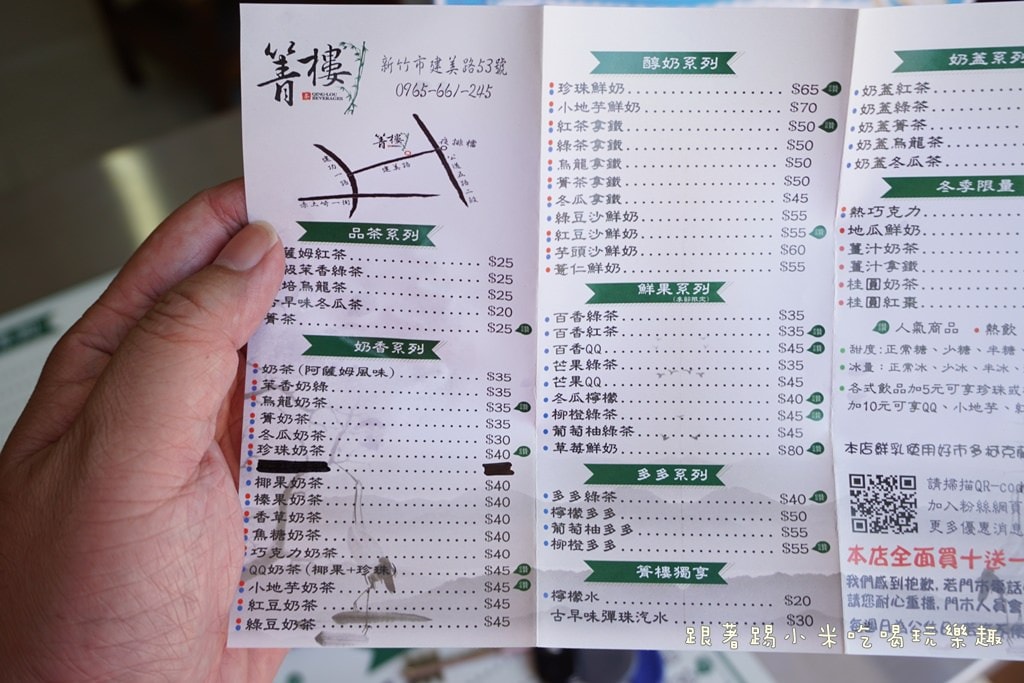 箐樓
QING LOU
BEVERAGES
新竹市建美路53號
0965-661-245
箐樓
建功一路
建美路
公道五路二段
赤土崎一街
品茶系列
薩姆紅茶 $25
級茉香綠茶 $25
培烏龍茶 $25
古早味冬瓜茶 $20
箐茶 $25
奶香系列
奶茶(阿薩姆風味) $35
茉香奶綠 $35
烏龍奶茶 $35
箐奶茶 $35
冬瓜奶茶 $30
珍珠奶茶 $40
椰果奶茶 $40
榛果奶茶 $40
香草奶茶 $40
焦糖奶茶 $40
巧克力奶茶 $40
QQ奶茶(椰果+珍珠) $45
小地芋奶茶 $45
紅豆奶茶 $45
綠豆奶茶 $45
醇奶系列
珍珠鮮奶 $65
小地芋鮮奶 $70
紅茶拿鐵 $50
綠茶拿鐵 $50
烏龍拿鐵 $50
箐茶拿鐵 $50
冬瓜拿鐵 $45
綠豆沙鮮奶 $55
紅豆沙鮮奶 $55
芋頭沙鮮奶 $60
薏仁鮮奶 $55
鮮果系列
(季節限定)
百香綠茶 $35
百香紅茶 $35
百香QQ $45
芒果綠茶 $35
芒果QQ $45
冬瓜檸檬 $40
柳橙綠茶 $45
葡萄柚綠茶 $45
草莓鮮奶 $80
多多系列
多多綠茶 $40
檸檬多多 $50
葡萄柚多多 $55
柳橙多多 $55
箐樓獨享
檸檬水 $20
古早味彈珠汽水 $30
奶蓋系列
奶蓋紅茶
奶蓋綠茶
奶蓋箐茶
奶蓋烏龍茶
奶蓋冬瓜茶
冬季限量
熱巧克力
地瓜鮮奶
薑汁奶茶
薑汁拿鐵
桂圓奶茶
桂圓紅棗
人氣商品 熱飲
甜度:正常糖、少糖、半糖、
冰量:正常冰、少冰、半冰、
各式飲品加5元可享珍珠或
加10元可享QQ、小地芋、
本店鮮乳使用好市多
請掃描QR-cod
加入粉絲網頁
更多優惠消息
本店全面買十送一
我們感到抱歉,若門市電話
請您耐心重播,門市人員會
跟著踢小米吃喝玩樂趣